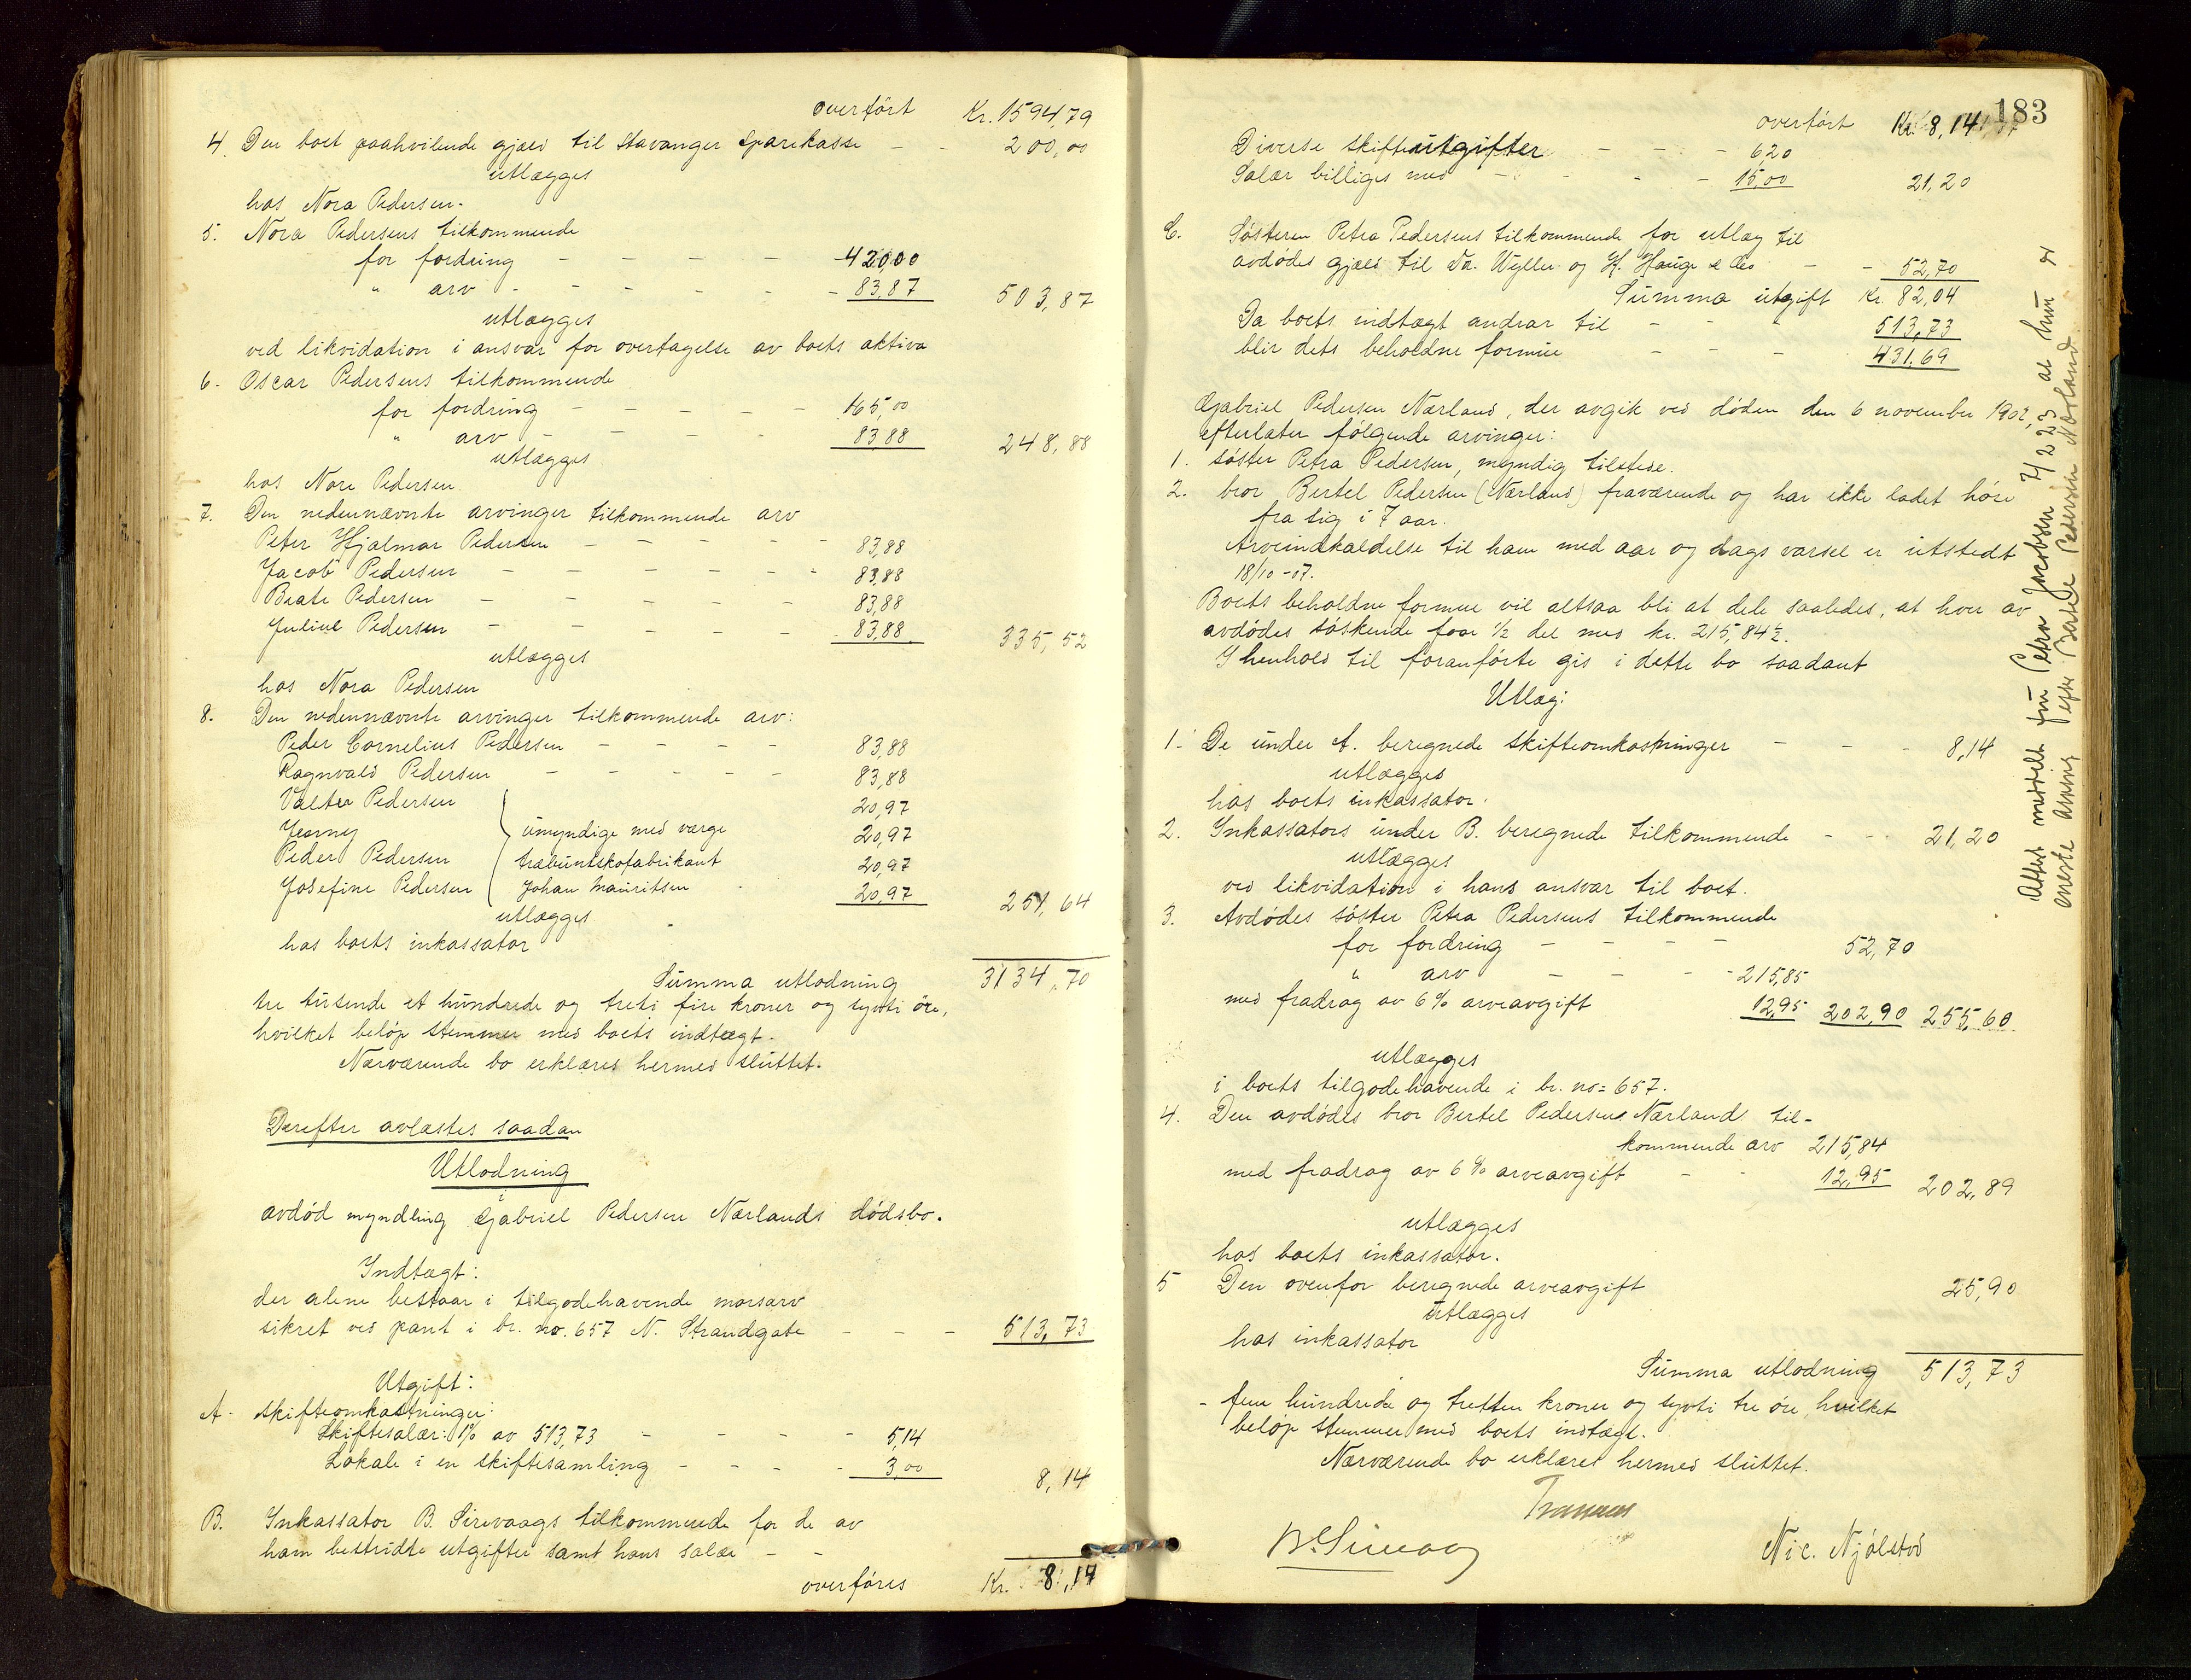 overført Kr. 1594,79
4. Den boet paahvilende gjæld til Stavanger Sparekasse - - 200,00
utlægges
hos Nora Pedersen.
5. Nora Pedersens tilkommende
for fordring - - - - - 420,00
" arv - - - - - - 83,87 503,87
utlægges
ved likvidation i ansvar for overtagelse av boets aktiva
6. Oscar Pedersens tilkommende
for fordring - - - - - 165,00
" arv - - - - 83,88 248,88
utlægges
hos Nora Pedersen
7. Den nedennævnte arvinger tilkommende arv
Peter Hjalmar Pedersen - - - - - 83,88
Jacob Pedersen - - - - - - 83,88
Beate Pedersen - - - - - 83,88
Juline Pedersen - - - - - 83,88 335,52
utlægges
hos Nora Pedersen
8. Den nedennævnte arvinger tilkommende arv:
Peder Cornelius Pedersen - - - - 83,88
Ragnvald Pedersen - - - - - 83,88
Valter Pedersen 20,97
Jenny umyndige med værge 20,97
Peder Pedersen træbundskofabrikant 20,97
Josefine Pedersen Johan Mauritsen 20,97 251,64
utlægges
hos boets inkassator
Summa utlodning 3134,70
tre tusende et hundrede og treti fire kroner og sytti øre,
hvilket beløp stemmer med boets indtægt.
Nærværende bo erklæres hermed sluttet.
Derefter avlæstes saadan
Utlodning
i
avdød myndling Gabriel Pedersen Nærlands dødsbo.
Indtægt:
der alene bestaar i tilgodehavende morsarv
sikret ved pant i br. no. 657 N. Strandgate - - - 513,73
Utgift:
A. Skifteomkostninger:
Skiftesalær: 1% av 513,73 - - - - 5,14
Lokale i en skiftesamling - - - - 3,00 8,14
B. Inkassator B. Sirevaags tilkommende for de av
ham bestridte utgifter samt hans salær - -
overføres Kr. 8,14
183
overført Kr. 8,14
Diverse skifteutgifter - - - - 6,20
Salær billiges med - - - - 15,00 21,20
C. Søsteren Petra Pedersens tilkommende for utlæg til
avdødes gjæld til Dr. Wyller og H. Hauge & Co - - 52,70
Summa utgift Kr. 82,04
Da boets indtægt andrar til - - - 513,73
blir dets beholdne formue - - - 431,69
Gabriel Pedersen Nærland, der avgik ved døden den 6 november 1902,
efterlater følgende arvinger:
1. søster Petra Pedersen, myndig tilstede.
2. bror Bertel Pedersen (Nærland) fraværende og har ikke ladet høre
fra sig i 7 aar.
Arveindkaldelse til ham med aar og dags varsel er utstedt
18/10-07.
Boets beholdne formue vil altsaa bli at dele saaledes, at hver av
avdødes søskende faar 1/2 del med kr. 215,84½.
I henhold til foranførte gis i dette bo saadant
Utlæg:
1. De under A. beregnede skifteomkostninger - - - 8,14
utlægges
hos boets inkassator.
2. Inkassators under B. beregnede tilkommende - - - 21,20
utlægges
ved likvidation i hans ansvar til boet.
3. Avdødes søster Petra Pedersens tilkommende
for fordring - - - - 52,70
" arv - - - - 215,85
med fradrag av 6% arveavgift 12,95 202,90 255,60
utlægges
i boets tilgodehavende i br. no: 657.
4. Den avdødes bror Bertel Pedersens Nærlands til-
kommende arv 215,84
med fradrag av 6% arveavgift - - 12,95 202,89
utlægges
hos boets inkassator.
5 Den ovenfor beregnede arveavgift 25,90
utlægges
hos inkassator
Summa utlodning 513,73
- fem hundrede og tretten kroner og sytti tre øre, hvilket
beløp stemmer med boets indtægt.
Nærværende bo erklæres hermed sluttet.
B. Sirevaag
Nic. Njølstad
Attest meddelt fru Petra Jacobsen 4/2 23 at hun er
eneste arving efter Bertel Pedersen Nærland